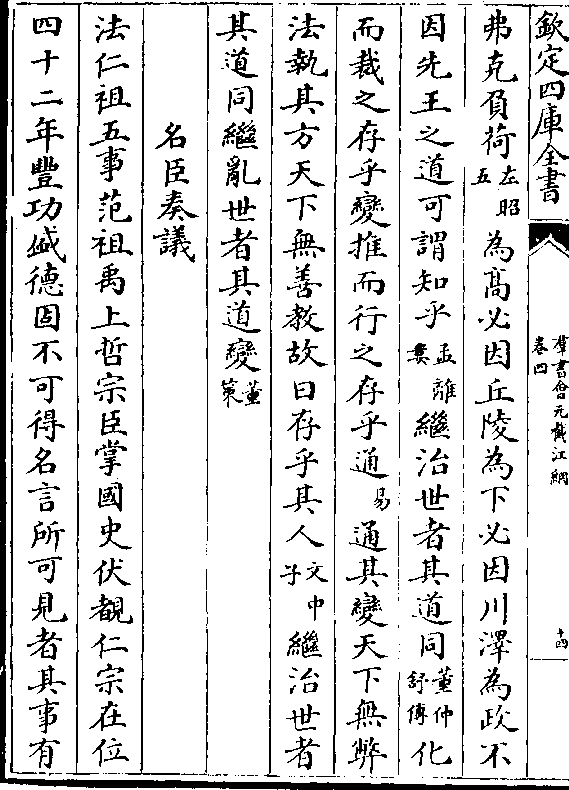 欽定四庫全書
羣書會元截江網
卷四
十四
弗克負荷左昭五為髙必因丘陵為下必因川澤為政不
因先王之道可謂知乎孟離婁繼治世者其道同董仲舒傳化
而裁之存乎變推而行之存乎通易通其變天下無弊
法執其方天下無善教故曰存乎其人文中子繼治世者
其道同繼亂世者其道變董策
名臣奏議
法仁祖五事范祖禹上哲宗臣掌國史伏覩仁宗在位
四十二年豐功盛德固不可得名言所可見者其事有